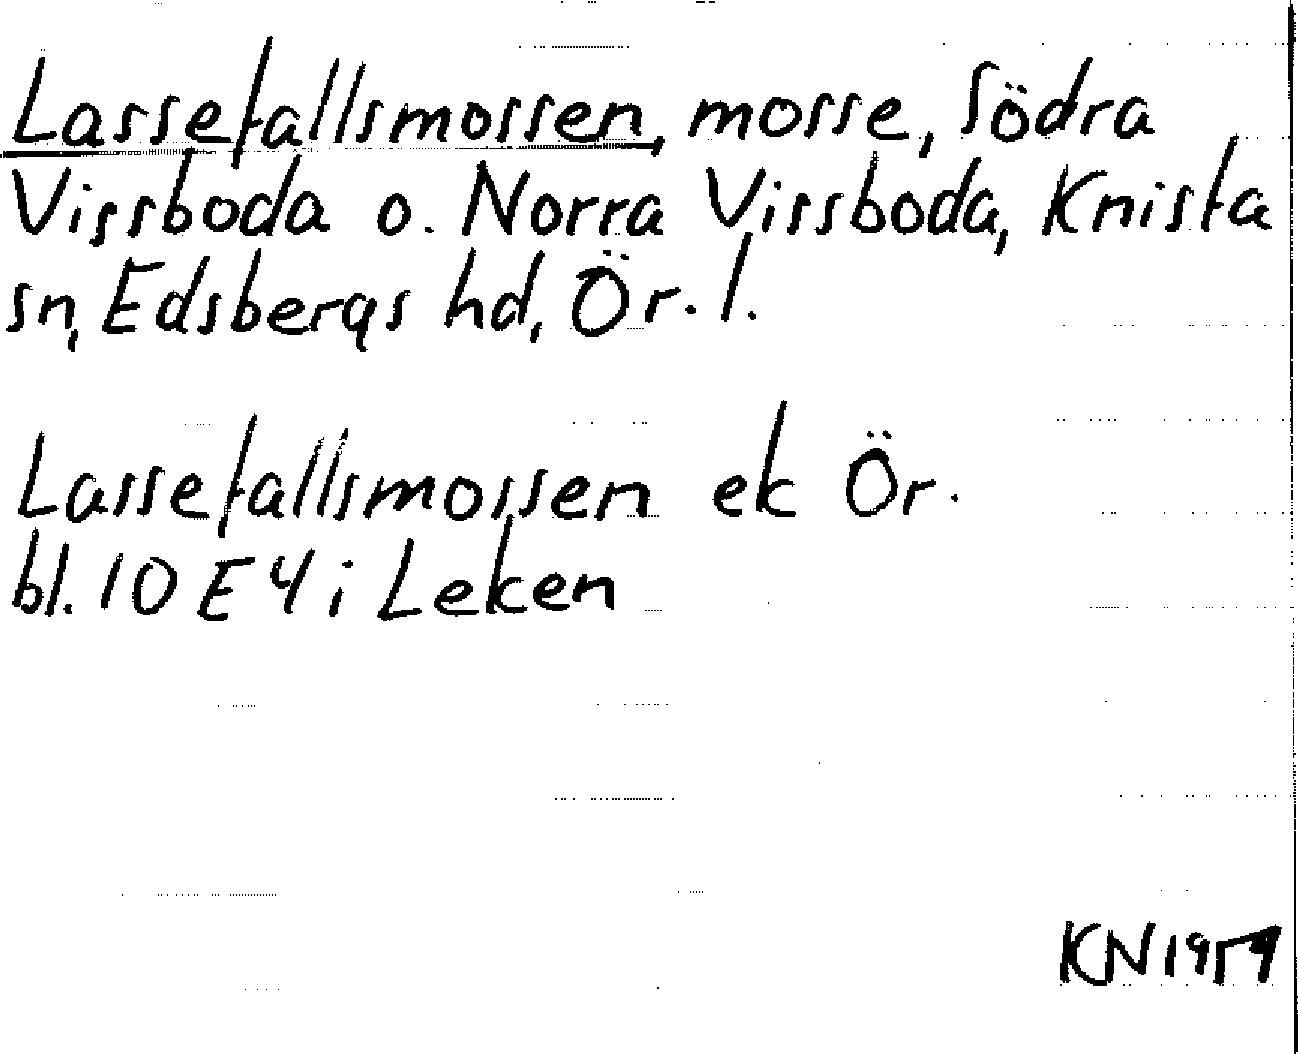 Lassefallsmossen, mosse, Södra
Vissboda o. Norra Vissboda, Knista
sn, Edsbergs hd, Ör. l.
Lassefallsmossen ek Ör.
bl. 10 E 4 i Leken
KN